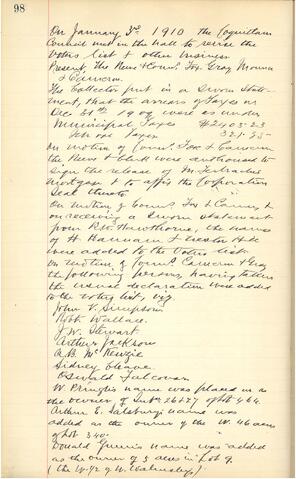 98
On January 3rd 1910 the Coquitlam
Council met in the hall to revise the
Voters list & other business
Present The Reeve & Coun's Fox Gray
& Cameron.
The Collector put in a Sworn State-
ment, that the arrears of Taxes on
Dec 31st 1909 were as under
Municipal Taxes
School Taxes
On motion of Coun's Fox & Cameron
the Reeve & Clerk were authorised to
sign the release of
mortgage & to affix the Corporation
Seal thereto
On motion of Coun's Fox &
on receiving a Sworn statement
from Hawthorne, the names
of H.
were added to the Voters list.
On motion of Coun's Cameron & Gray
the following persons, having taken
the usual declaration were added
to the voting list, viz.
John V. Simpson
Robt Wallace.
J. W. Stewart
Arthur Jackson
A. B. McKenzie
Sidney Cleave.
Oswald
W. Pringle's name was placed in as
the owner of 26 & 27 of 464.
Arthur E. name was
added as the owner of the W. 46 acres
of Lot 340.
Donald name was added
as the owner of 5 acres in Lot 9.
(the W. 1/2 of